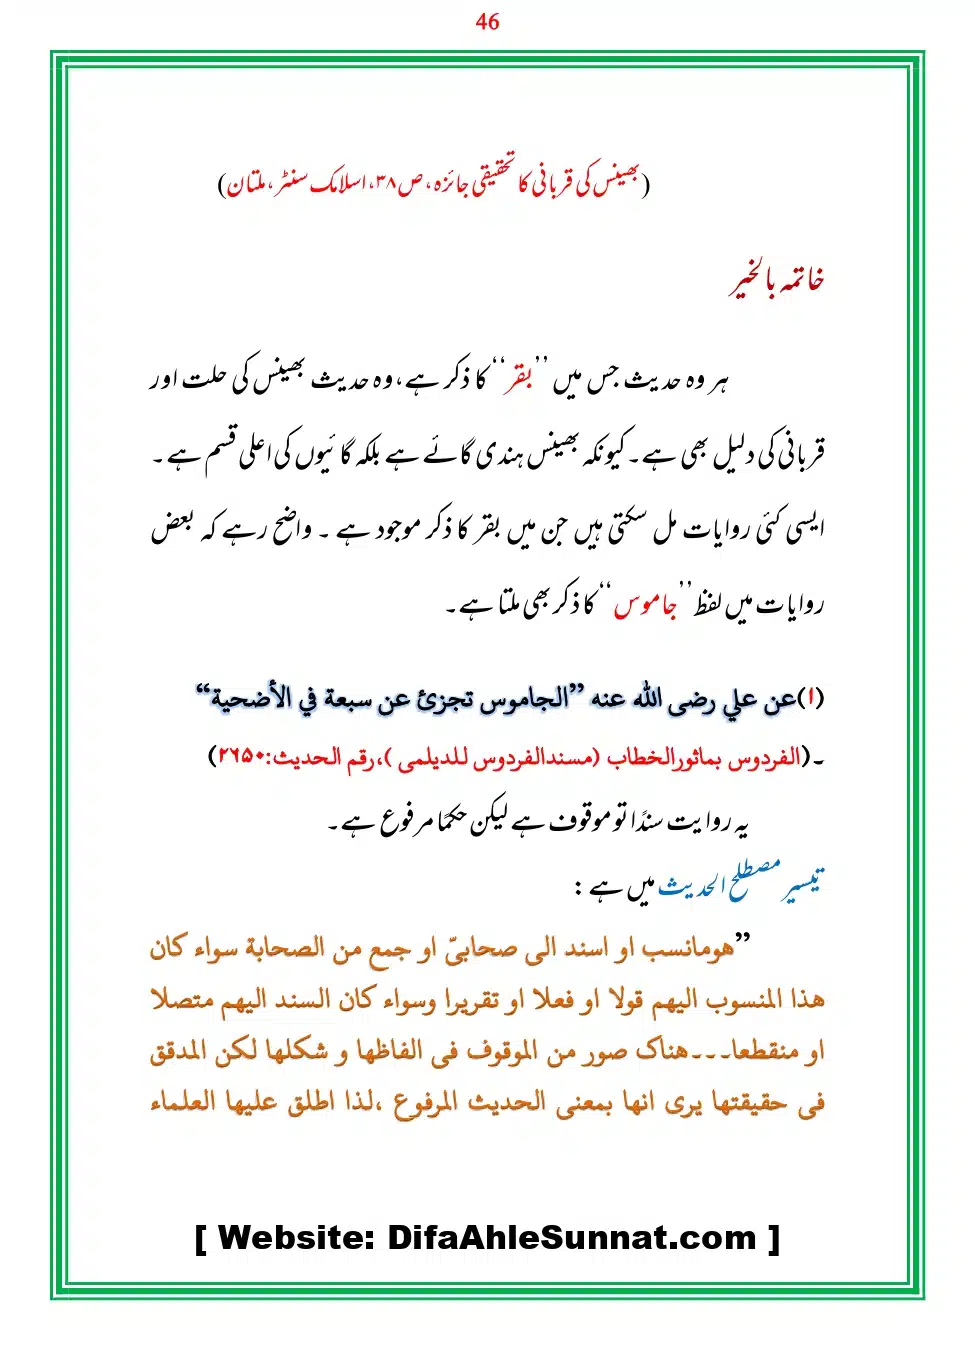 46
(بھینس کی قربانی کا تحقیقی جائزہ،ص۳۸،اسلامک سنٹر،ملتان)
خاتمہ بالخیر
ہر وہ حدیث جس میں ’’بقر‘‘ کا ذکر ہے،وہ حدیث بھینس کی حلت اور
قربانی کی دلیل بھی ہے۔کیونکہ بھینس ہندی گائے ہے بلکہ گائیوں کی اعلی قسم ہے۔
ایسی کئی روایات مل سکتی ہیں جن میں بقر کا ذکر موجود ہے ۔ واضح رہے کہ بعض
روایات میں لفظ ’’جاموس‘‘ کا ذکر بھی ملتا ہے۔
(۱)عن علي رضی الله عنه ”الجاموس تجزئ عن سبعة في الأضحية“
۔(الفردوس بماثورالخطاب (مسندالفردوس للدیلمی )،رقم الحدیث:۲۶۵۰)
یہ روایت سنڈا تو موقوف ہے لیکن حکمًا مرفوع ہے۔
تیسیر مصطلح الحدیث میں ہے :
”هومانسب او اسند الی صحابیّ او جمع من الصحابة سواء کان
هذا المنسوب الیهم قولا او فعلا او تقریرا وسواء کان السند الیهم متصلا
او منقطعا۔۔۔هناک صور من الموقوف فی الفاظها و شکلها لکن المدقق
فی حقیقتها یری انها بمعنی الحدیث المرفوع ،لذا اطلق علیها العلماء
[ Website: DifaAhleSunnat.com ]